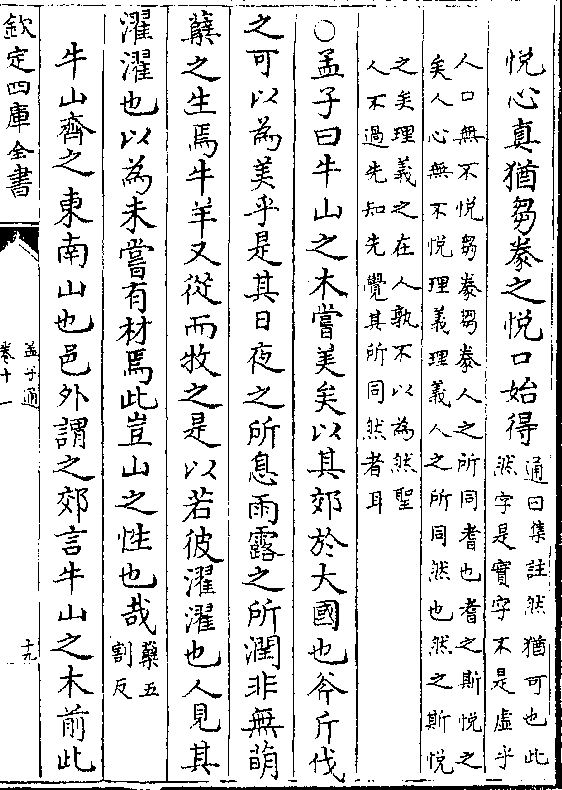 悅心真猶芻豢之悅口始得
通曰集註然猶可也此
然字是實字不是虛乎
人口無不悅芻豢芻豢人之所同耆也耆之斯悅之
矣人心無不悅理義理義人之所同然也然之斯悅
之矣理義之在人孰不以為然聖
人不過先知先覺其所同然者耳
○孟子曰牛山之木嘗美矣以其郊於大國也斧斤伐
之可以為美乎是其日夜之所息雨露之所潤非無萌
蘖之生焉牛羊又從而牧之是以若彼濯濯也人見其
濯濯也以為未嘗有材焉此豈山之性也哉
蘖五
割反
牛山齊之東南山也邑外謂之郊言牛山之木前此
欽定四庫全書
孟子通
卷十一
十九